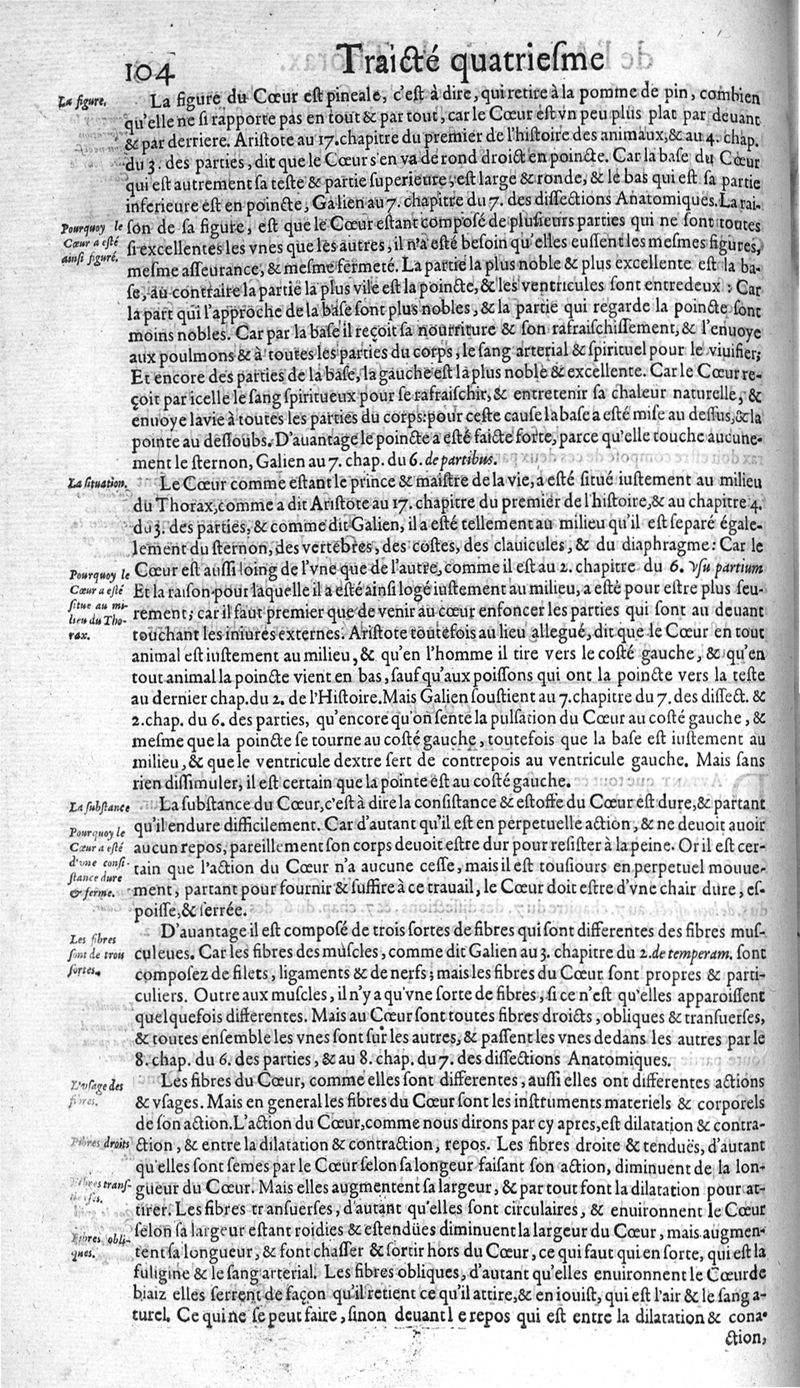 104
Traicté quatrieſme
La figure.
La figure du Cœur eſt pineale, c'eſt à dire, qui retire à la pomme de pin, combien
qu'elle ne ſi rapporte pas en tout & par tout, car le Cœur eſt vn peu plus plat par deuant
& par derriere. Ariſtote au 17. chapitre du premier de l'hiſtoire des animaux, & au 4. chap.
du 3. des parties, dit que le Cœur s'en va de rond droict en poincte. Car la baſe du Cœur
qui eſt autrement ſa teſte & partie ſuperieure, eſt large & ronde, & le bas qui eſt ſa partie
inferieure eſt en poincte, Galien au 7. chapitre du 7. des diſſections Anatomiques. La rai-
Pourquoy le
Cœur a eſté
ainſi figuré.
ſon de ſa figure, eſt que le Cœur eſtant compoſé de pluſieurs parties qui ne ſont toutes
ſi excellentes les vnes que les autres, il n'a eſté beſoin qu'elles euſſent les meſmes figures,
meſme aſſeurance, & meſme fermeté. La partie la plus noble & plus excellente eſt la ba-
ſe, au contraire la partie la plus vile eſt la poincte, & les ventricules ſont entredeux : Car
la part qui l'approche de la baſe ſont plus nobles, & la partie qui regarde la poincte ſont
moins nobles. Car par la baſe il reçoit ſa nourriture & ſon rafraiſchiſſement, & l'enuoye
aux poulmons & à toutes les parties du corps, le ſang arterial & ſpirituel pour le viuifier;
Et encore des parties de la baſe, la gauche eſt la plus noble & excellente. Car le Cœur re-
çoit par icelle le ſang ſpiritueux pour ſe rafraiſchir, & entretenir ſa chaleur naturelle, &
enuoye la vie à toutes les parties du corps: pour ceſte cauſe la baſe a eſté miſe au deſſus, & la
pointe au deſſoubs. D'auantage le poincte a eſté faicte forte, parce qu'elle touche aucune-
ment le ſternon, Galien au 7. chap. du 6. de partibus.
La ſituation.
Le Cœur comme eſtant le prince & maiſtre de la vie, a eſté ſitué iuſtement au milieu
du Thorax, comme a dit Ariſtote au 17. chapitre du premier de l'hiſtoire, & au chapitre 4.
du 3. des parties, & comme dit Galien, il a eſté tellement au milieu qu'il eſt ſeparé égale-
lement du ſternon, des vertebres, des coſtes, des clauicules, & du diaphragme: Car le
Pourquoy le
Cœur a eſté
ſitue au mi-
lieu du Tho-
rax.
Cœur eſt auſſi loing de l'vne que de l'autre, comme il eſt au 2. chapitre du 6. vſu partium
Et la raiſon pour laquelle il a eſté ainſi logé iuſtement au milieu, a eſté pour eſtre plus ſeu-
rement; car il faut premier que de venir au cœur enfoncer les parties qui ſont au deuant
touchant les iniures externes. Ariſtote toutefois au lieu allegué, dit que le Cœur en tout
animal eſt iuſtement au milieu, & qu'en l'homme il tire vers le coſté gauche, & qu'en
tout animal la poincte vient en bas, ſauf qu'aux poiſſons qui ont la poincte vers la teſte
au dernier chap. du 2. de l'Hiſtoire. Mais Galien ſouſtient au 7. chapitre du 7. des diſſect. &
2. chap. du 6. des parties, qu'encore qu'on ſente la pulſation du Cœur au coſté gauche, &
meſme que la poincte ſe tourne au coſté gauche, toutefois que la baſe eſt iuſtement au
milieu, & que le ventricule dextre ſert de contrepois au ventricule gauche. Mais ſans
rien diſſimuler, il eſt certain que la pointe eſt au coſté gauche.
La ſubſtance
La ſubſtance du Cœur, c'eſt à dire la conſiſtance & eſtoffe du Cœur eſt dure, & partant
Pourquoy le
Cœur a eſté
d'vne conſi-
ſtance dure
& ferme.
qu'il endure difficilement. Car d'autant qu'il eſt en perpetuelle action, & ne deuoit auoir
aucun repos, pareillement ſon corps deuoit eſtre dur pour reſiſter à la peine. Or il eſt cer-
tain que l'action du Cœur n'a aucune ceſſe, mais il eſt touſiours en perpetuel mouue-
ment, partant pour fournir & ſuffire à ce trauail, le Cœur doit eſtre d'vne chair dure, eſ-
poiſſe, & ſerrée.
Les fibres
ſont de trois
ſortes.
D'auantage il eſt compoſé de trois ſortes de fibres qui ſont differentes des fibres muſ-
culeues. Car les fibres des muſcles, comme dit Galien au 3. chapitre du 2. de temperam. ſont
compoſez de filets, ligaments & de nerfs; mais les fibres du Cœur ſont propres & parti-
culiers. Outre aux muſcles, il n'y a qu'vne ſorte de fibres, ſi ce n'eſt qu'elles apparoiſſent
quelquefois differentes. Mais au Cœur ſont toutes fibres droicts, obliques & tranſuerſes,
& toutes enſemble les vnes ſont ſur les autres, & paſſent les vnes dedans les autres par le
8. chap. du 6. des parties, & au 8. chap. du 7. des diſſections Anatomiques.
L'vſage des
fibres.
Les fibres du Cœur, comme elles ſont differentes, auſſi elles ont differentes actions
& vſages. Mais en general les fibres du Cœur ſont les inſtruments materiels & corporels
de ſon action. L'action du Cœur, comme nous dirons par cy apres, eſt dilatation & contra-
Fibres droits
ction, & entre la dilatation & contraction, repos. Les fibres droite & tenduës, d'autant
qu'elles ſont ſemes par le Cœur ſelon ſa longeur faiſant ſon action, diminuent de la lon-
Fibres tranſ-
ſes.
gueur du Cœur. Mais elles augmentent ſa largeur, & par tout font la dilatation pour at-
tirer. Les fibres tranſuerſes, d'autant qu'elles ſont circulaires, & enuironnent le Cœur
Fibres obli-
ques.
ſelon ſa largeur eſtant roidies & eſtenduës diminuent la largeur du Cœur, mais augmen-
tent ſa longueur, & font chaſſer & ſortir hors du Cœur, ce qui faut qui en ſorte, qui eſt la
fuligine & le ſang arterial. Les fibres obliques, d'autant qu'elles enuironnent le Cœur de
biaiz elles ſerrent de façon qu'il retient ce qu'il attire, & en iouiſt, qui eſt l'air & le ſang a-
turel. Ce qui ne ſe peut faire, ſinon deuant le repos qui eſt entre la dilatation & cona-
ction,